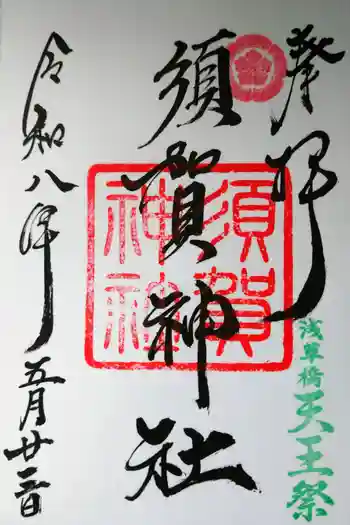 奉拝
浅草橋
天王祭
須賀神社
須賀神社
令和八年
五月廿二日